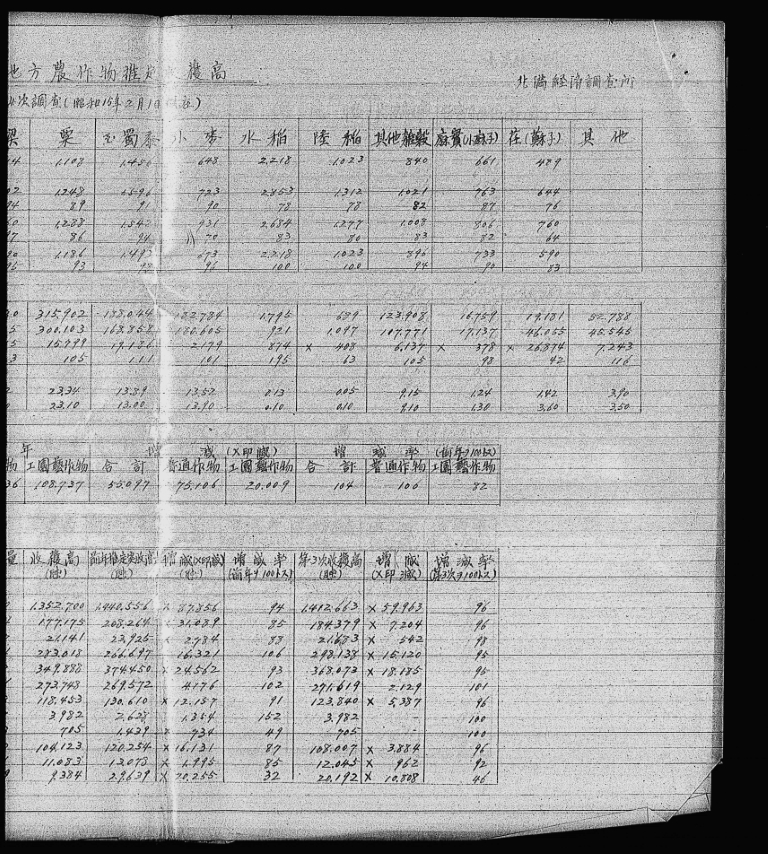 地方農作物推定收穫高
北滿經濟調查所
次調查(昭和15年2月1日現在)
粟 玉蜀黍 小麥 水稻 陸稻 其他雜穀 麻實(小麻子) 荏(蘇子) 其他
1.108 648 2.218 1.023 840 661 489
1.248 6.596 723 2.853 1.312 1.021 763 644
89 91 90 78 78 82 87 76
1.288 931 2.684 1.277 1.008 806 760
86 94 70 83 80 83 82 64
1.186 1.497 673 2.218 1.023 896 733 590
93 96 100 100 94 90 83
315.902 188.044 182.784 1.795 689 123.908 16.759 19.181 52.788
300.103 168.858 180.605 921 1.097 107.771 17.137 46.055 45.545
15.799 19.186 2.179 874 × 408 6.137 × 378 × 26.874 7.243
105 111 101 195 63 105 98 42 116
23.34 13.89 13.52 0.13 0.05 9.15 1.24 1.42 3.90
23.10 13.00 13.90 0.10 0.10 9.10 1.30 3.60 3.50
年 增減 (×印減) 增減率 (前年ヲ100トス)
工園藝作物 合計 普通作物 工園藝作物 合計 普通作物 工園藝作物
108.737 55.097 75.106 20.009 104 106 82
收穫高 前年推定實收高 增減(×印減) 增減率 第3次收穫高 增減 增減率
(瓲) (瓲) (瓲) (前年ヲ100トス) (瓲) (×印減) (第3次ヲ100トス)
1.352.700 1.440.556 × 87.856 94 1.412.663 × 59.963 96
177.175 208.264 × 31.089 85 184.379 × 7.204 96
21.141 23.925 × 2.784 88 21.683 × 542 98
283.018 266.697 16.321 106 298.138 × 15.120 95
349.888 374.450 × 24.562 93 368.073 × 18.185 95
273.748 269.572 4.176 102 271.619 2.129 101
118.453 130.610 × 12.157 91 123.840 × 5.387 96
3.982 2.628 1.354 152 3.982 - 100
705 1.439 × 734 49 705 - 100
104.123 120.254 × 16.131 87 108.007 × 3.884 96
11.083 13.073 × 1.995 85 12.045 × 962 92
9.384 29.639 × 20.255 32 20.192 × 10.808 46